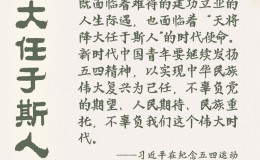 大任于斯人
既面临着难得的建功立业的
人生际遇，也面临着“天将
降大任于斯人”的时代使命。
新时代中国青年要继续发扬
五四精神，以实现中华民族
伟大复兴为己任，不辜负党
的期望、人民期待、民族重
托，不辜负我们这个伟大时
代。
——习近平在纪念五四运动